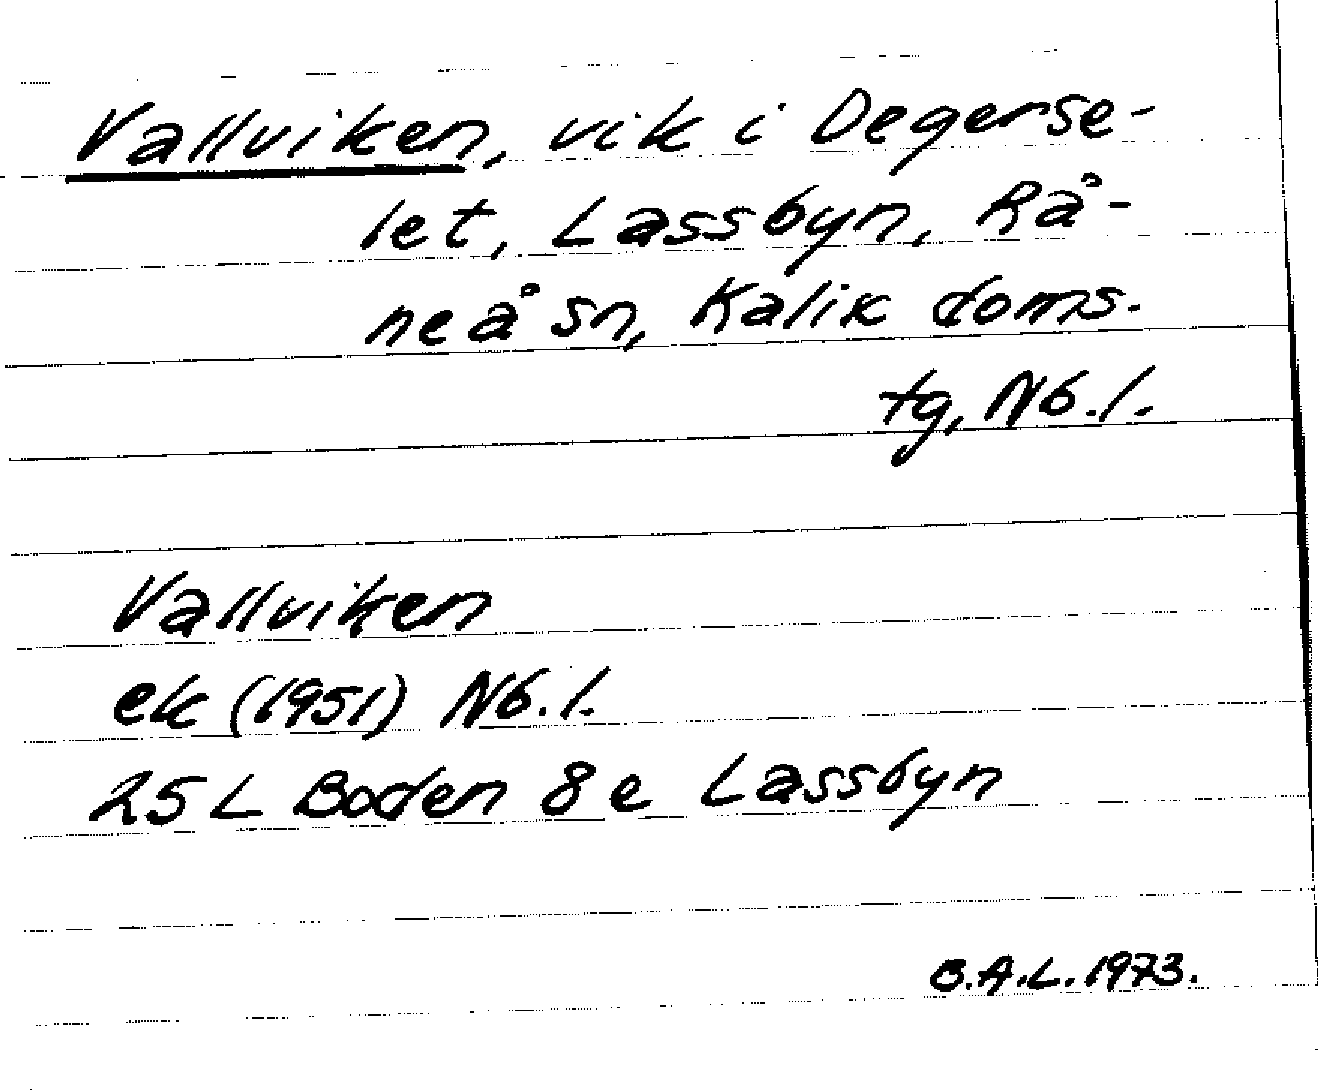 Vallviken, vik i Degerse-
let, Lassbyn, Rå-
neå sn, Kalix doms.
tg, Nb. l.
Vallviken
ek (1951) Nb. l.
25 L Boden 8e Lassbyn
B.A.L. 1973.